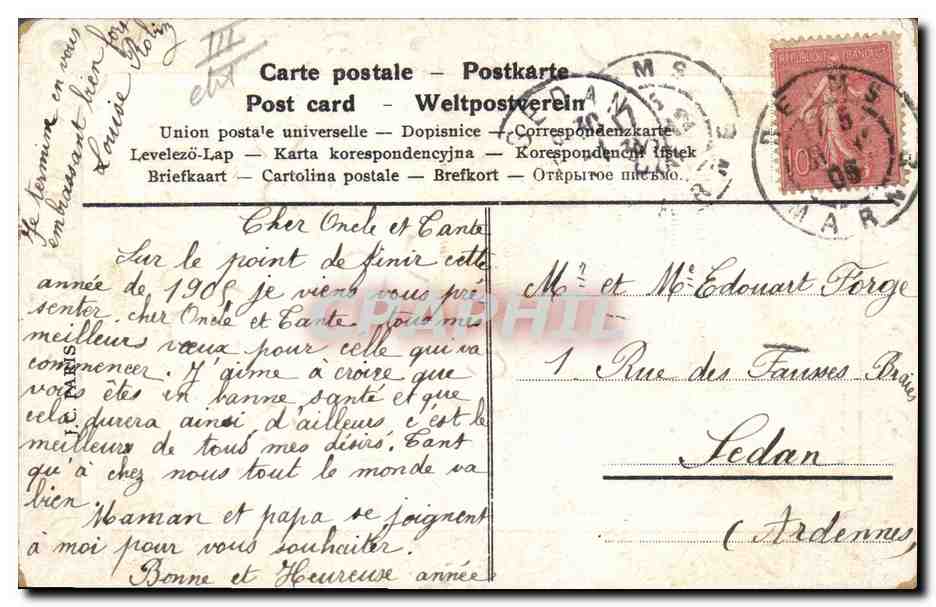 Je termine en vous
embrassant bien fort
Louise Robin
III
Carte postale – Postkarte
Post card - Weltpostverein
Union postale universelle — Dopisnice — Correspondenzkarte
Levelező-Lap — Karta korespondencyjna — Korespondenční lístek
Briefkaart — Cartolina postale — Brefkort — Открытое письмо.
SEDAN
REIMS
MARNE
REPUBLIQUE FRANÇAISE
10
REIMS
05
MARNE
Cher Oncle et Tante
Sur le point de finir cette
année de 1905 je viens vous pré-
senter. cher Oncle et Tante tous mes
meilleurs vœux pour celle qui va
commencer. J'aime à croire que
vous êtes in banne santé et que
cela durera ainsi d'ailleurs c'est le
meilleurs de tous mes désirs. Tant
qu'à chez nous tout le monde va
bien.
Maman et papa se joignent
à moi pour vous souhaiter.
Bonne et Heureuse année
J.C. PARIS
CPAPHIL
Mr et Me Edouart Forge
1. Rue des Fausses Braies
Sedan
(Ardennes)